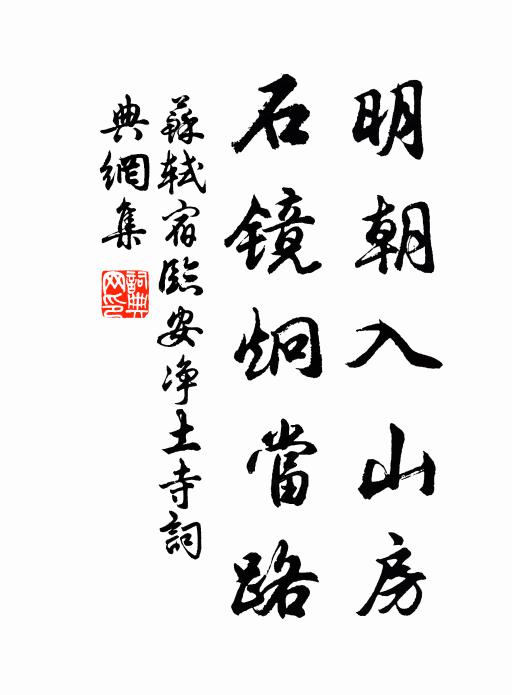 明朝入山房
石镜炯當路
蘇軾宿臨安净土寺詞
典網集
詞典
网印